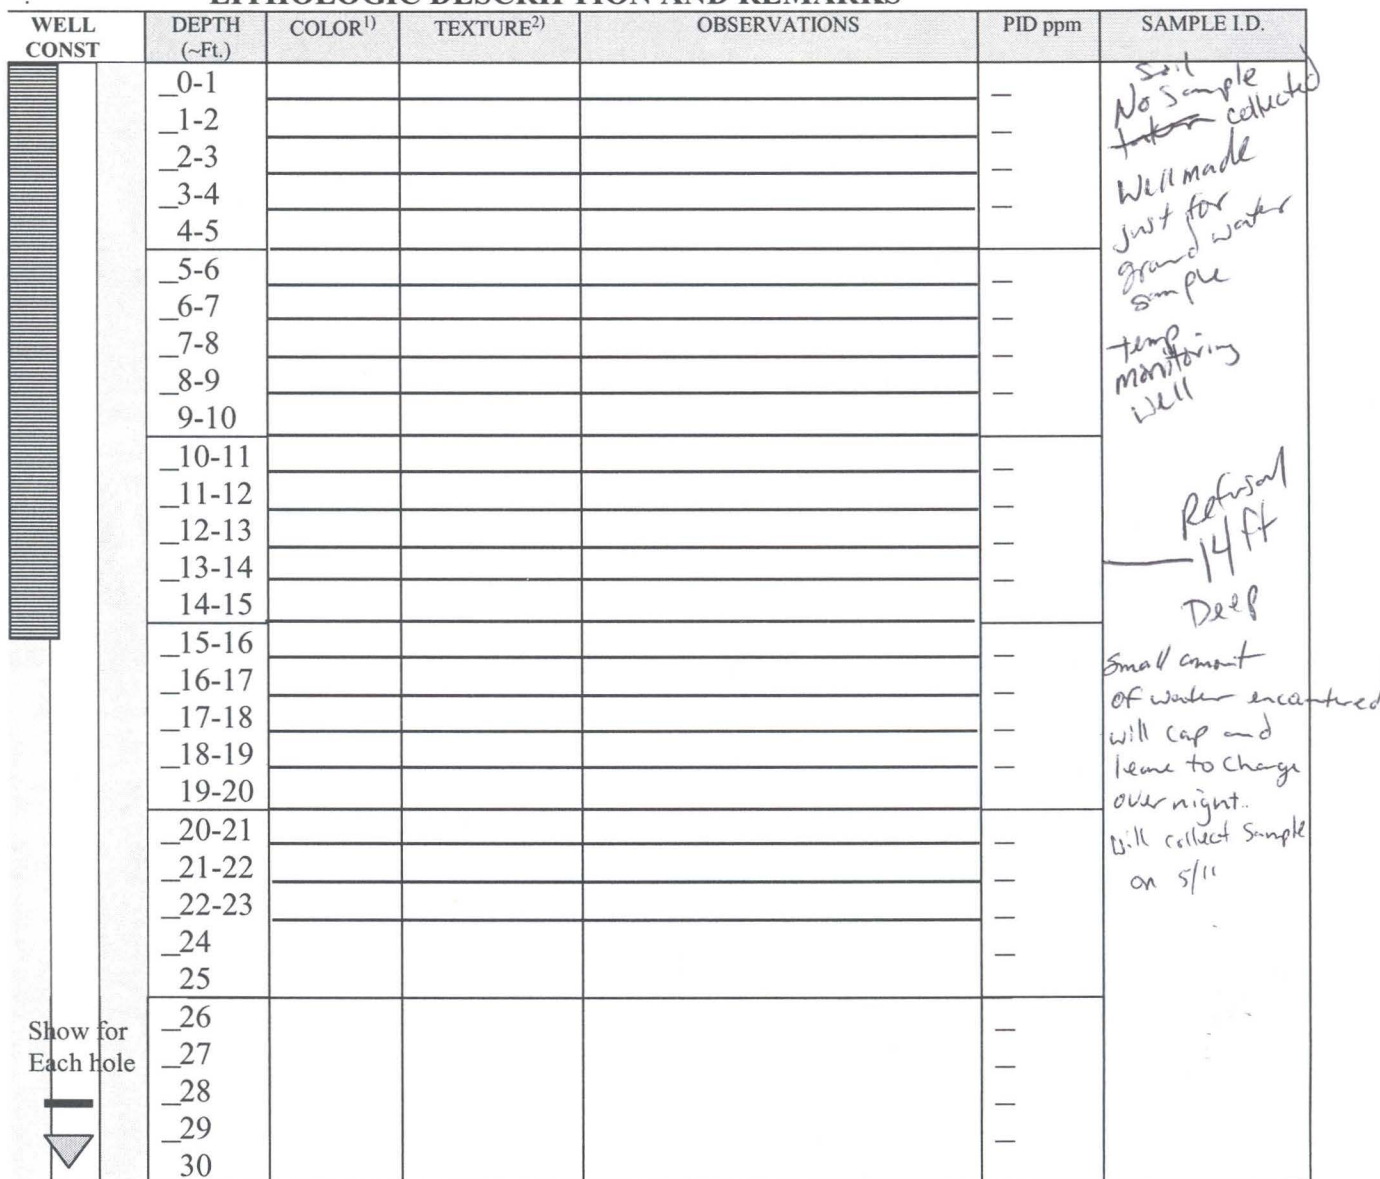 LITHOLOGIC DESCRIPTION AND REMARKS
WELL CONST DEPTH (~Ft.) COLOR1) TEXTURE2) OBSERVATIONS PID ppm SAMPLE I.D.
_0-1
_1-2
_2-3
_3-4
4-5
_5-6
_6-7
_7-8
_8-9
9-10
_10-11
_11-12
_12-13
_13-14
14-15
_15-16
_16-17
_17-18
_18-19
19-20
_20-21
_21-22
_22-23
_24
25
_26
_27
_28
_29
30
Show for
Each hole
Soil
No Sample
taken collected
Well made
just for
ground water
sample
temp
monitoring
well
Refusal
14 ft
Deep
Small amount
of water encountered
will cap and
leave to charge
overnight.
Will collect Sample
on 5/11